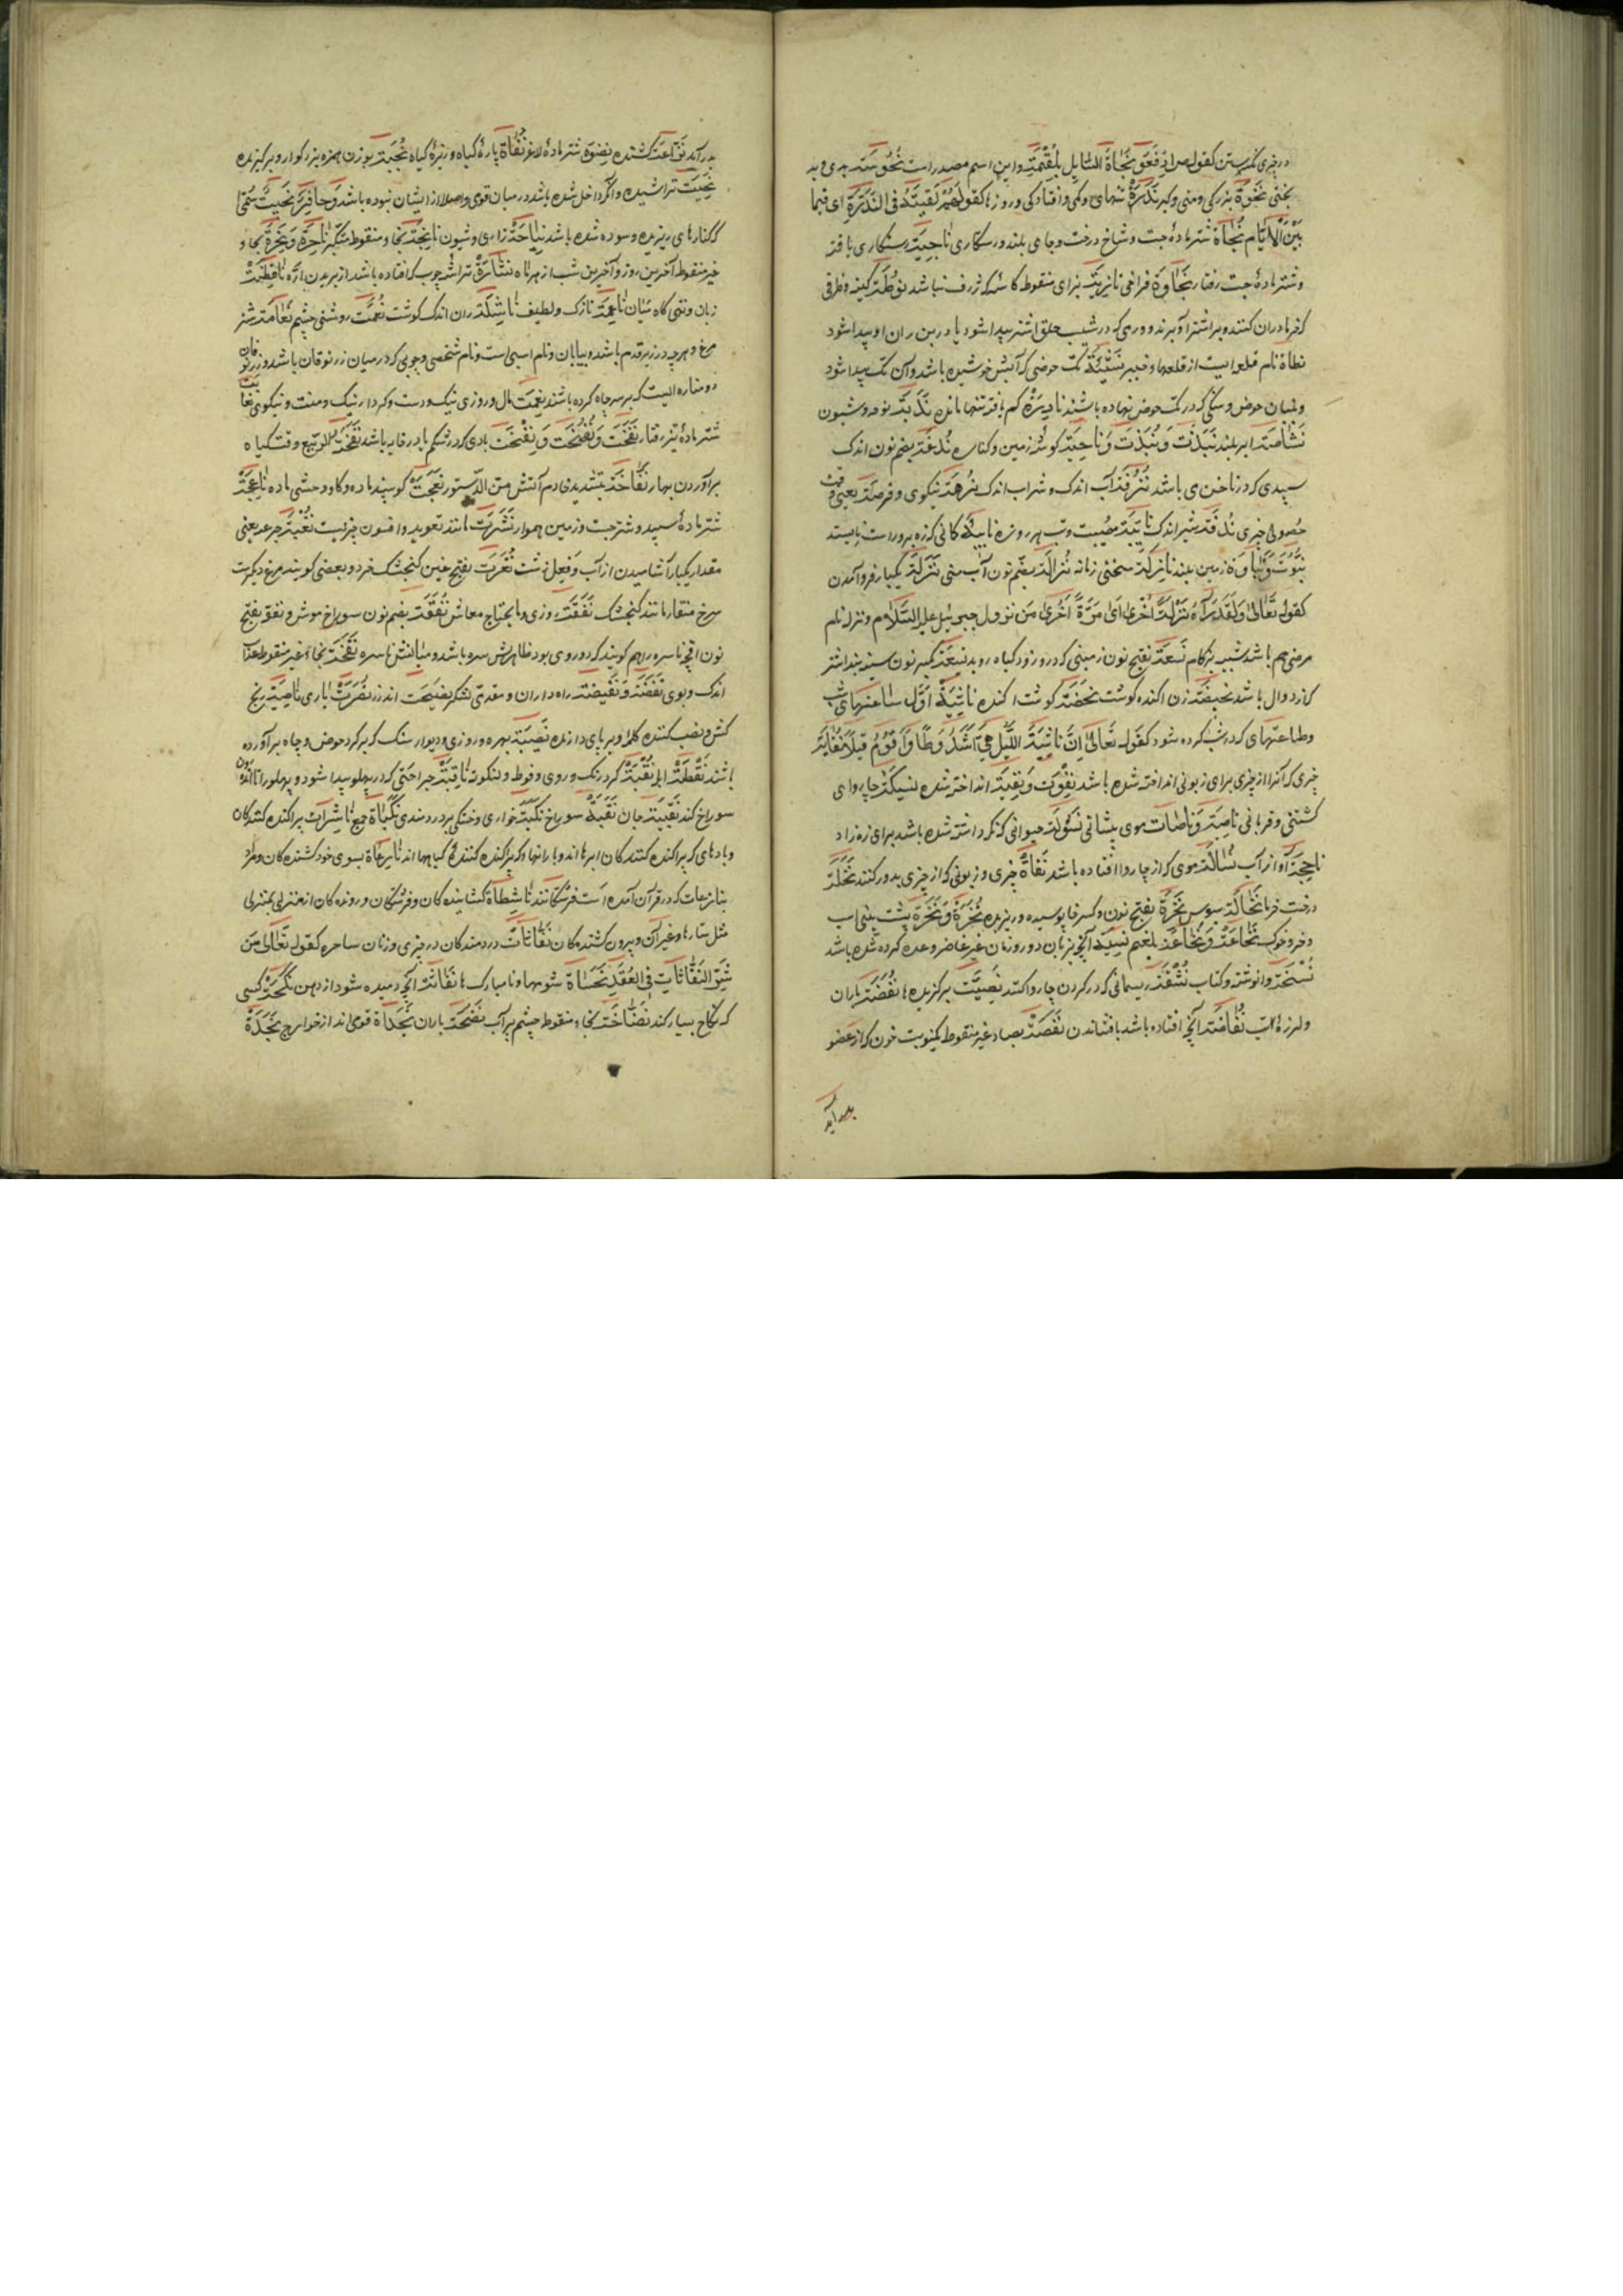 در چیزی نگریستن کقوله فَعَوِّ نَجْاَةَ السّایِلِ بِلُقْمَةٍ و این اسم مصدر است نُحُوسَة بدی و بد
بختی نَخوَة بزرکی و منی و کبر نَدْرَة تنهای و کمی و افتادکی و روزها کقولهم لَقِیتَهُ فی النَّدْرَةِ ای فیما
بَیْنَ الْاَیّام نَجْاة شتر مادهٔ جست و شاخ درخت و جای بلند و رستکاری ناجِیَة رستکاری یافته
و شتر مادهٔ جست رفتار نَجاوَة فراخی نازیة بزای منقوطه کاسهٔ که ژرف نباشد نَوطَة کینه و ظرفی
که خرما در آن کنند و بر اشتر آویزند و ورمی که در شیب حلق اشتر پیدا شود یا در بن ران او پیدا شود
نطاة نام قلعه ایست از قلعهای خیبر نَشیئَة تک حوضی که آبش خوشیده باشد و آن تک پیدا شود
و لبهان حوض و سنکی که در تک حوض نهاده باشند نادِرَة کم یافته تنها مانده نُدبَة نوحه و شیون
نَشاصَة ابر بلند نَبذَت وَ نُبذَت وَ ناحِیَة کوشهٔ زمین و کناره نُدغَة بضم نون اندک
سپیدی که در ناخن می باشد نُزفَة آب اندک و شراب اندک نُزهَة نیکوی و فرصة یعنی وقت
حصول چیزی نُدفَة شیر اندک نایبَة مصیبت و تب هر روزه نابِلَة کانی که زه بر و راست بایستد
نبوت وَ نَباوَة زمین بلند نازِلَة سختی زمانه نُزالَة بضم نون آب منی نَزلَة یکبار فرو آمدن
کقوله تَعالی وَلَقَد رَآهُ نَزلَةً اُخری ای مَرَّةً اُخری مِن نزول جبرئیل علیه السّلام و نزله نام
مرضی هم باشد شبیه بزکام نَسعَة بفتح نون زمینی که در و زود کیاه روید نِسعَة بکسر نون سینه بند اشتر
که از دوال باشد نحیضَة زن اکنده کوشت نَحضَة کوشت اکنده ناشِیَة اوّل ساعتهای شب
و طاعتهای که در شب کرده شود کقوله تَعالی اِنَّ ناشِئَةَ اللَّیلِ هِیَ اَشَدُّ وَطْاً وَ اَقوَمُ قیلاً نُفایَة
چیزی که آنرا از چیزی برای زبونی انداخته شده باشد نِقْوَت وَ نَقِیَة انداخته شده نسیکَة چارپای
کشتنی و قربانی ناصِیَة وَ ناصات موی پیشانی نَسُولَة حیوانی که نکه داشته شده باشد برای زه زاد
ناجِخَة آواز آب نُسالَة موی که از چاروا افتاده باشد نَفاة چیزی و زبونی که از چیزی بدور کنند نَخلَة
درخت خرما نُخالَة سبوس نَخِرَة بفتح نون و کسر خا پوسیده و ریزیده نُخرَة وَ نُخَرَة پشت بینی اسب
و خر و خوک نُخاعَة وَ نُخاعَة بلغم نسیَة آنچه بزبان دو روز زمان غیر حاضر وعده کرده شده باشد
نُسْخَة وانوشته و کتاب نُشْقَة ریسمانی که در کردن چاروا کنند نَصِیَّت برکزیدها نُفضَة باران
و لرزهٔ تب نُفاضَة آنچه افتاده باشد بافشاندن نَفصَة بصاد غیر منقوطه یک نوبت خون که از عضو
بدر آید
بدر آید نزّاعَة کشنده نِضوَة شتر مادهٔ لاغر نُفاة پارهٔ کیاه و ریزهٔ کیاه نُجَبَة بوزن همزه بزرکوار و برکزیده
نَحِیت تراشیده و آنکه داخل شده باشد در میان قومی و اصلا از ایشان نبوده باشد وَ حافِرٌ نَحیت سُمّی
که کنارهای ریزیده و سوده شده باشد نِیاحَة زاری و شیون نابِخَة بخاء منقوطه متکبر ناحِرَة وَ نَحِیرَة بحاء
غیر منقوطه آخرین روز و آخرین شب از هر ماه نُشارَة تراشهٔ چوب که افتاده باشد از بریدن ارّه ناطِقَة
زبان و تهی کاه میان ناعِمَة نازک و لطیف ناشِلَة ران اندک کوشت نُعمَة روشنی چشم نَعامَة شتر
مرغ و هر چه در زیر قدم باشد و بیابان و نام اسبی است و نام شخصی و چوبی که در میان زرنوقان باشد و زرنوقان
دو مناره ایست که بر سر چاه کرده باشند نِعمَة مال و روزی نیک و دست و کردار نیک و منت و نیکوی نعا
شتر مادهٔ تیز رفتار نَفخَت وَ نُفْخَت وَ نِفْخَت بادی که در شکم یا در خایه باشد نَفخَةُ الرّبیع وقت کیاه
برآوردن بهار نَفّاخَة بتشدید فا دم آتش من الدستور نَعجَت کوسپند ماده و کاو وحشی ماده ناعِجَة
شتر مادهٔ سپید و شتر جست و زمین هموار نُشرَت مانند تعویذ و افسون چیزیست نُغبَة جرعه یعنی
مقدار یکبار آشامیدن از آب وَ فعل زشت نُغَرَت بفتح غین کنجشک خرد و بعضی کویند مرغ دیکرست
سرخ منقار مانند کنجشک نَفَقَة روزی و مایحتاج معاش نُفَقَت بضم نون سوراخ موش و نفقه بفتح
نون آنچه ناسره را هم کویند که دوروی بود ظاهرش سره باشد و میانش ناسره نَفحَة بحاء غیر منقوطه عذاب
اندک و بوی نَفَضَة وَ نَفیضَة راه داران و مقدمهٔ لشکر نَصیحَت اندرز نُصرَت یاری ناصِبَة رنج
کش و نصب کننده کلمه و برپای دارنده نَصِیبَة بهره و روزی و دیوار سنک که برکرد حوض و چاه برآورده
باشند نُقطَة ابله نُقبَة کردرنک و روی و فوطه و لنکوته ناقِبَة جراحتی که در پهلو پیدا شود و پهلو را تا اندرون
سوراخ کند نَقِیبَة جان نَقبَة سوراخ نَکبَة خواری و خستکی پر دردمندی نکباة جمع ناشِرات پراکنده کنندکان
و بادهای که پراکنده کنندکان ابرها اند و بارانها و که پراکنده کنندهٔ کیاهها اند نازِعاة بسوی خود کشنده کان و مراد
بنازعات که در قرآن آمده است فرشتکانند ناشِطاة کشاینده کان و فرشتکان و رونده کان از منزلی بمنزلی
مثل ستارها و غیر آن و بیرون کشنده کان نَفّاثات در دمندکان در چیزی و زنان ساحره کقوله تَعالی مِن
شَرِّ النَفّاثاتِ فِی العُقَد نَحساة شومها و نامبارک ها نُفاثَة آنچه دمیده شود از دهن نُکَحَة کسی
که نکاح بسیار کند نَضّاخَة بخاء منقوطه چشمه پر آب نَضحَة باران نَجَداة قومی اند از خوارج نَجدَة